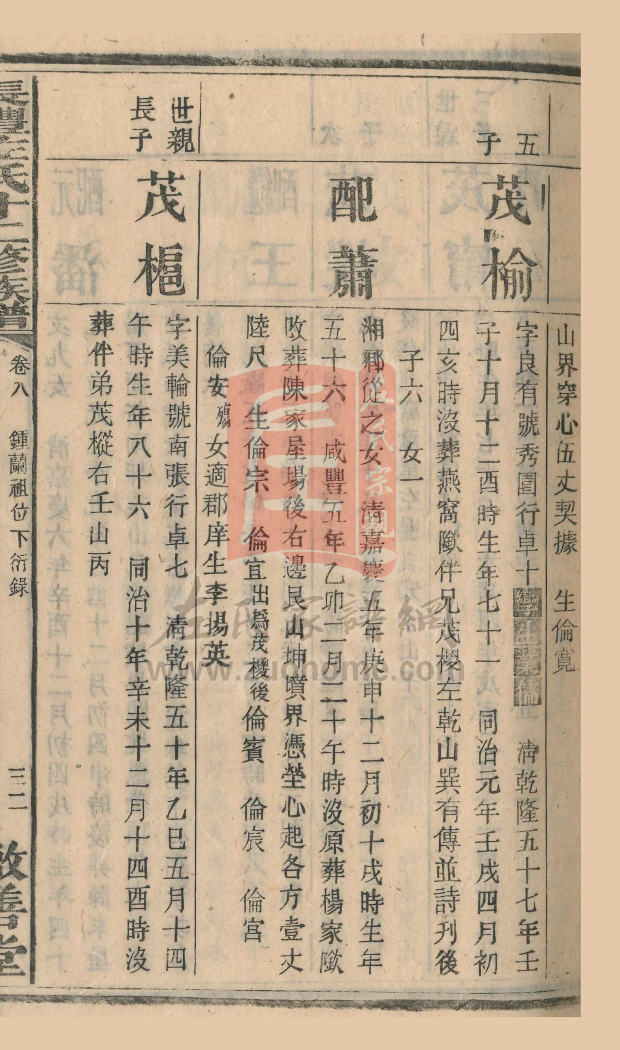 山界穿心伍丈契據　生倫寬
五子
茂榆
字良有號秀圍行卓十　清乾隆五十七年壬
子十月十二酉時生年七十一　同治元年壬戌四月初
四亥時沒葬燕窩陬伴兄茂樱左乾山巽有傳並詩刋後
子六　女一
配蕭
湘鄉從之女　清嘉慶五年庚申十二月初十戌時生年
五十六　咸豐五年乙卯二月二十午時沒原葬楊家陬
改葬陳家屋場後右邊艮山坤墳界憑塋心起各方壹丈
陸尺　生倫宗　倫宜出爲茂機後倫賓　倫宸　倫宫
倫安殤女適郡庠生李揚英
世親長子
茂梔
字美輪號南張行卓七　清乾隆五十年乙巳五月十四
午時生年八十六　同治十年辛未十二月十四酉時沒
葬伴弟茂樅右壬山丙
長豐左氏十二修族譜　卷八　鍾蘭祖位下衍錄　三二　敦善堂
左氏家譜網
www.zuohome.com